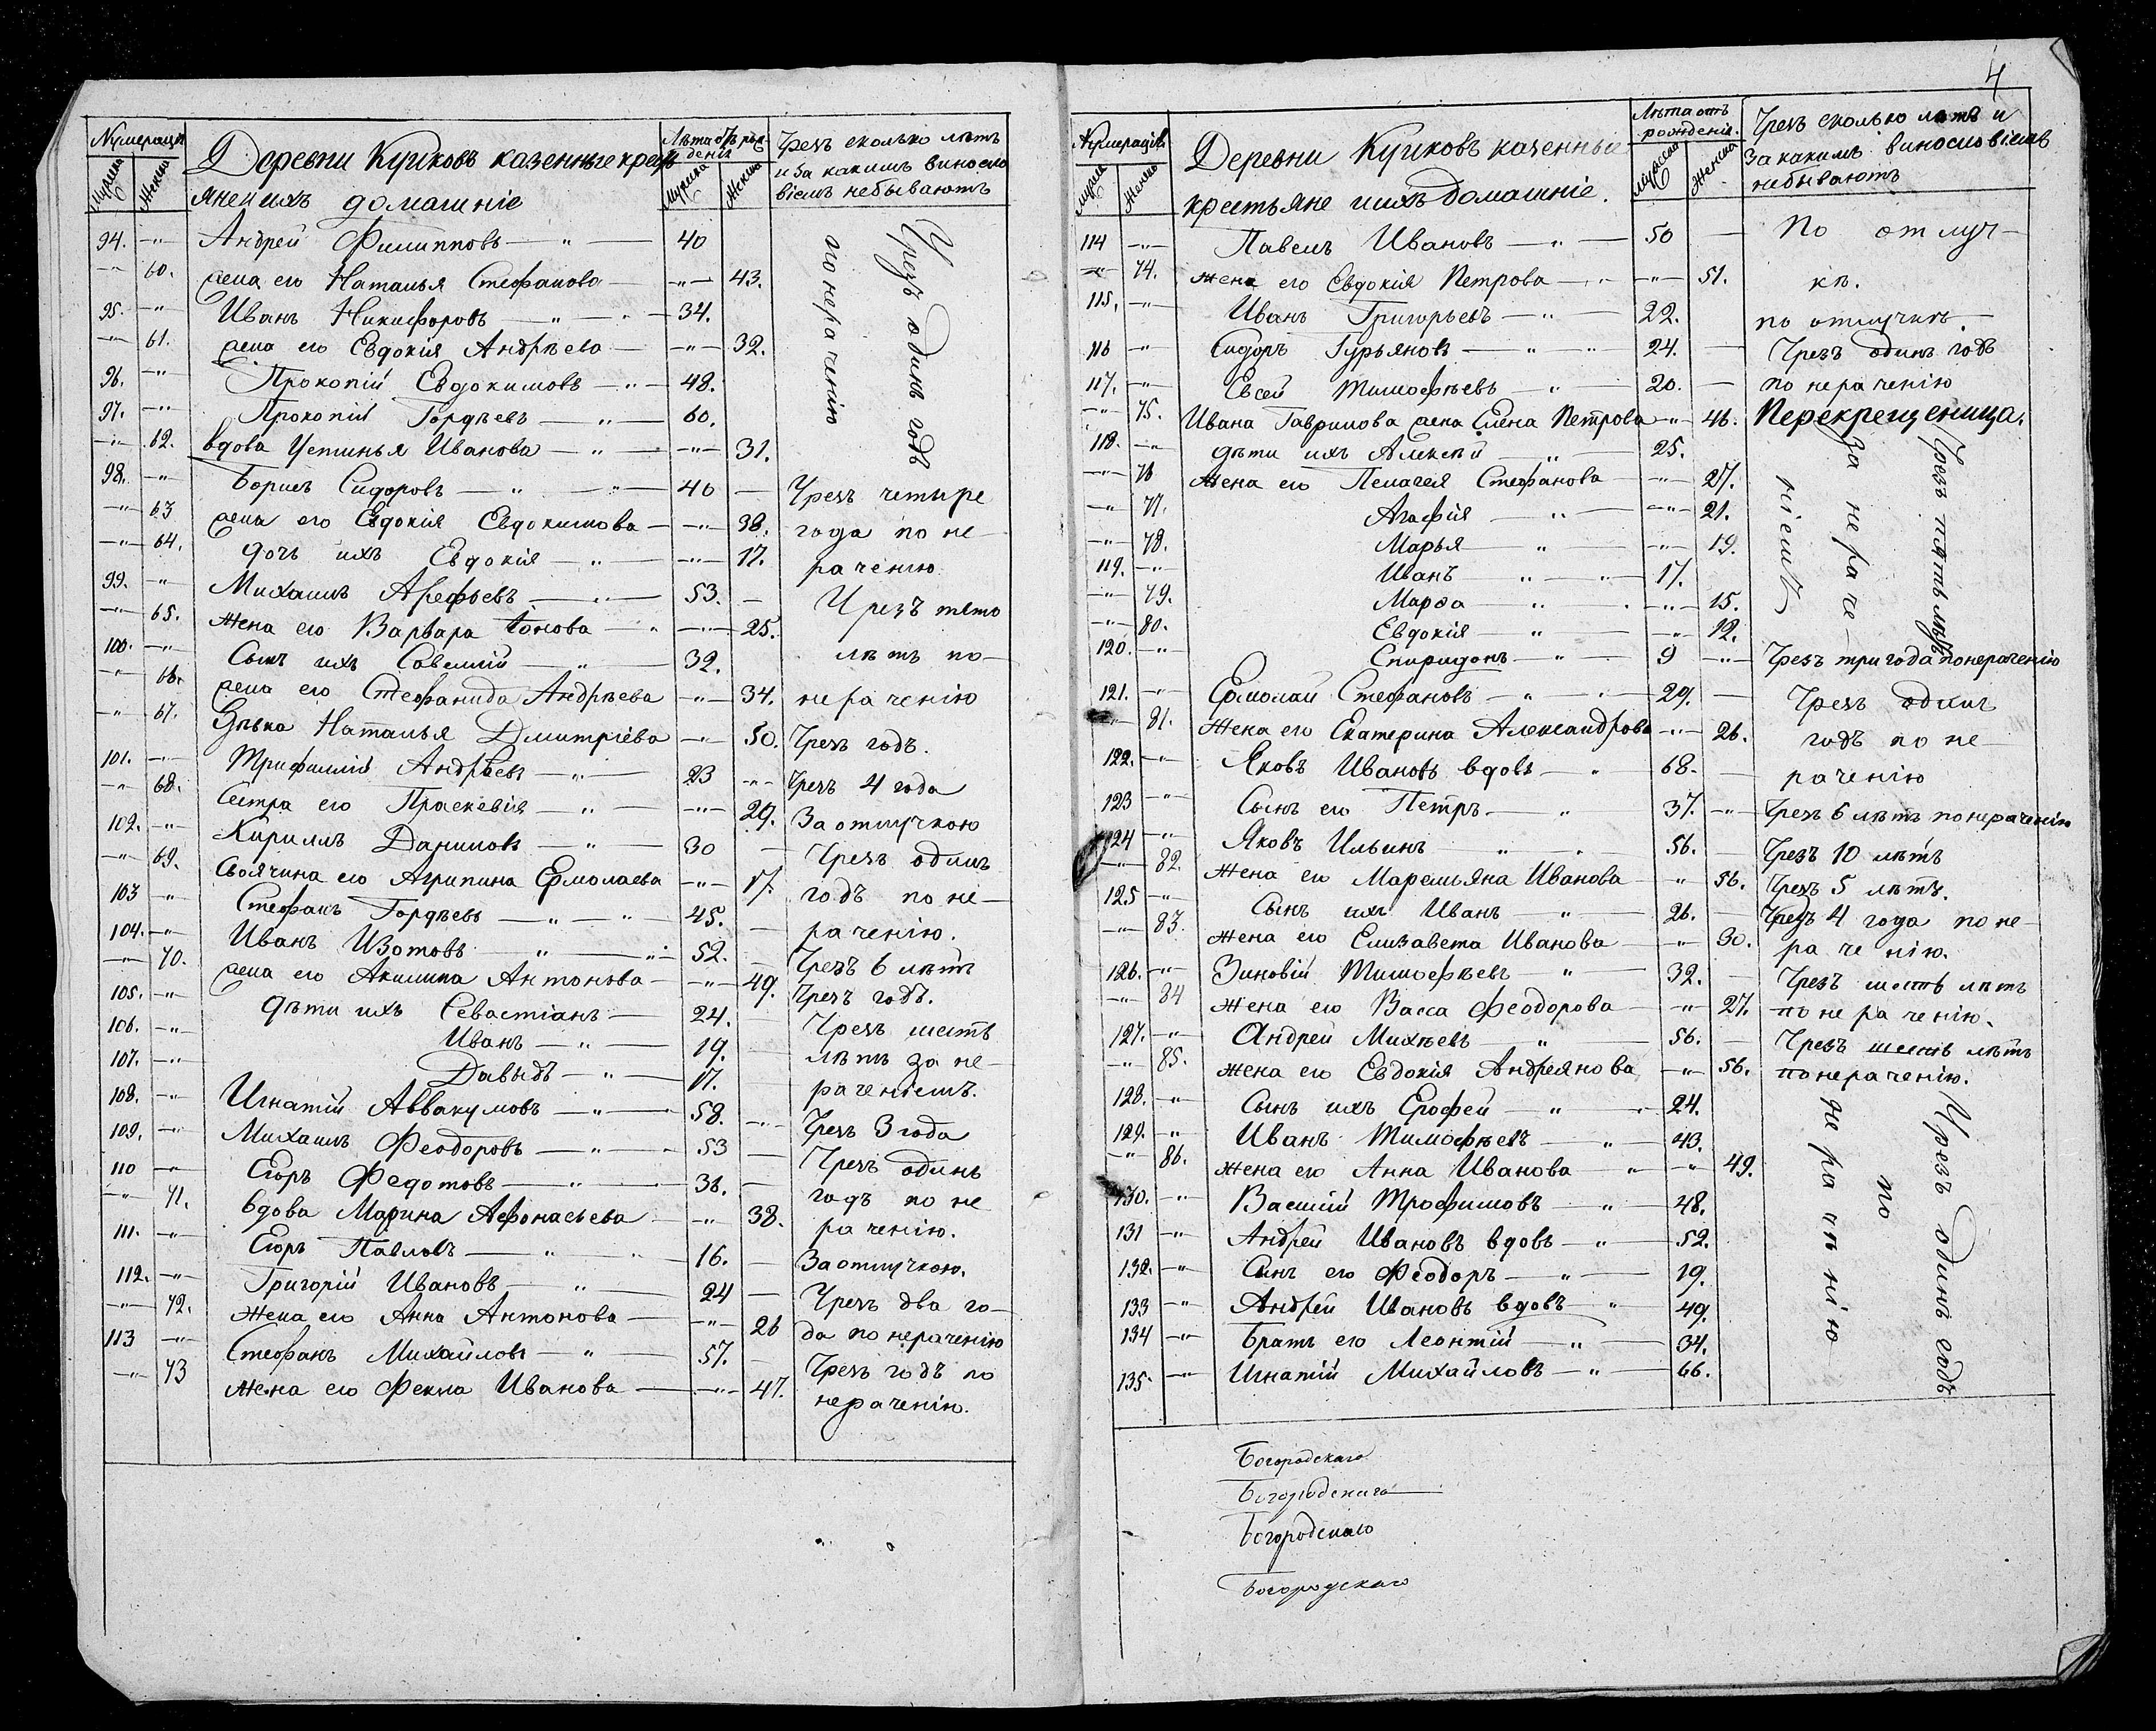 Нумерація
Деревни Кучковъ казенные кресть
Лѣта отъ рож
денія
Чрезъ сколько лѣтъ
и за какимъ виносло
віемъ небываютъ
Мужска
Женска
Мужска
Женска
яне и ихъ домашніе
94. —"— Андрей Филипповъ —"— 40
—"— 60. жена его Наталья Стефанова —"— 43.
95. —"— Иванъ Никифоровъ —"— 34.
—"— 61. жена его Евдокія Андрѣева —"— 32.
96. —"— Прокопій Евдокимовъ —"— 48.
97. —"— Прокопій Гордѣевъ —"— 60.
—"— 62. вдова Устинья Иванова —"— —"— 31.
Чрезъ одинъ годъ
по нераченію
98. —"— Борисъ Сидоровъ —"— 40 — Чрезъ четыре
—"— 63 жена его Евдокія Евдокимова —"— 38. года по не—
—"— 64. дочь ихъ Евдокія —"— —"— 17. раченію
99. —"— Михаилъ Арефьевъ —"— 53. — Чрезъ пято
—"— 65. Жена его Варвара —"— 25. лѣтъ по—
100. —"— Сынъ ихъ Савелий —"— 32.
—"— 66. жена его Стефанида Андрѣева —"— 34. нераченію
—"— 67. Дѣвка Наталья Димитріева —"— 50. Чрезъ годъ.
101. —"— Трифилий Андрѣевъ —"— 23 —"— Чрезъ 4 года
—"— 68. Сестра его Праскевія —"— —"— 29. За отлучкою
102. —"— Кириллъ Даниловъ —"— 30 — Чрезъ одинъ
—"— 69. Своячина его Агрипина Ермолаева —"— 17. годъ по не—
103 —"— Стефанъ Гордѣевъ —"— 45. — раченію.
104. —"— Иванъ Изотовъ —"— 52. — Чрезъ 6 лѣтъ
—"— 70. жена его Акилина Антонова —"— 49. Чрезъ годъ.
105. —"— дѣти ихъ Севастіанъ — 24. — Чрезъ шесть
106. —"— Иванъ —"— 19. — лѣтъ за не—
107. —"— Давыдъ —"— 17. раченіемъ.
108. —"— Игнатій Аввакумовъ —"— 58. —"— Чрезъ 3 года
109. —"— Михаилъ Феодоровъ —"— 53 — Чрезъ одинъ
110 —"— Егоръ Федотовъ —"— 36. — годъ по не
—"— 71. вдова Марина Афонасьева —"— 38. раченію.
111. —"— Егоръ Павловъ —"— 16. — За отлучкою.
112. —"— Григорій Ивановъ —"— 24 — Чрезъ два го—
—"— 72. Жена его Анна Антонова —"— 26 да по нераченію
113 —"— Стефанъ Михайловъ —"— 57. — Чрезъ годъ по
—"— 73 Жена его Фекла Иванова —"— 47. нераченію.
4
Нумерація
Деревни Кучковъ казенные
Лѣта отъ
рожденія.
Чрезъ сколько лѣтъ и
за какимъ винословіемъ
небываютъ
Мужск
Женск
Мужска
Женска
крестьяне и ихъ домашніе.
114 —"— Павелъ Ивановъ —"— 50 — По отлуч—
—"— 74. Жена его Евдокія Петрова —"— —"— 51. кѣ.
115. —"— Иванъ Григорьевъ —"— 22. по отлучкѣ. —
116 —"— Сидоръ Гурьяновъ —"— 24. — Чрезъ одинъ годъ
117. —"— Евсей Тимофѣевъ —"— 20. — по нераченію
—"— 75. Ивана Гаврилова жена Елена Петрова —"— 46. Перекрещеница.
118. —"— дѣти ихъ Алексѣй —"— 25.
—"— 76 Жена его Пелагея Стефанова —"— 27.
—"— 77. Агафія —"— —"— 21.
—"— 78. Марья —"— —"— 19.
119. —"— Иванъ —"— 17.
—"— 79. Марѳа —"— —"— 15.
—"— 80. Евдокія —"— —"— 12.
Чрезъ пять лѣтъ
за нераче—
ніемъ
120. —"— Спиридонъ —"— 9 —"— Чрезъ три года по нераченію
121. —"— Ермолай Стефановъ —"— 29. — Чрезъ одинъ
—"— 81. Жена его Екатерина Александрова —"— 26. годъ по не—
122. —"— Яковъ Ивановъ вдовъ —"— 68. — раченію
123 —"— Сынъ его Петръ —"— 37. —"— Чрезъ 6 лѣтъ по нераченію
124 —"— Яковъ Ильинъ —"— 56. — Чрезъ 10 лѣтъ
—"— 82. Жена его Маремьяна Иванова —"— 56. Чрезъ 5 лѣтъ.
125 —"— Сынъ ихъ Иванъ —"— 26. — Чрезъ 4 года по не—
—"— 83. Жена его Елизавета Иванова —"— 30. раченію.
126. —"— Зиновій Тимофѣевъ —"— 32. — Чрезъ шесть лѣтъ
—"— 84 Жена его Васса Феодорова —"— 27. по нераченію.
127. —"— Андрей Михѣевъ —"— 56. — Чрезъ шесть лѣтъ
—"— 85. Жена его Евдокія Андреянова —"— 56. по нераченію.
128. —"— Сынъ ихъ Ерофей —"— 24.
129. —"— Иванъ Тимофѣевъ —"— 43.
—"— 86. Жена его Анна Иванова —"— —"— 49.
130. —"— Василий Трофимовъ —"— 48.
131 —"— Андрей Ивановъ вдовъ —"— 52.
132. —"— Сынъ его Феодоръ —"— 19.
133 —"— Андрей Ивановъ вдовъ —"— 49.
134 —"— Братъ его Леонтій —"— 34.
135. —"— Игнатій Михайловъ —"— 66.
Чрезъ одинъ годъ
по
нераченію
Богородскаго
Богородскаго
Богородскаго
Богородскаго